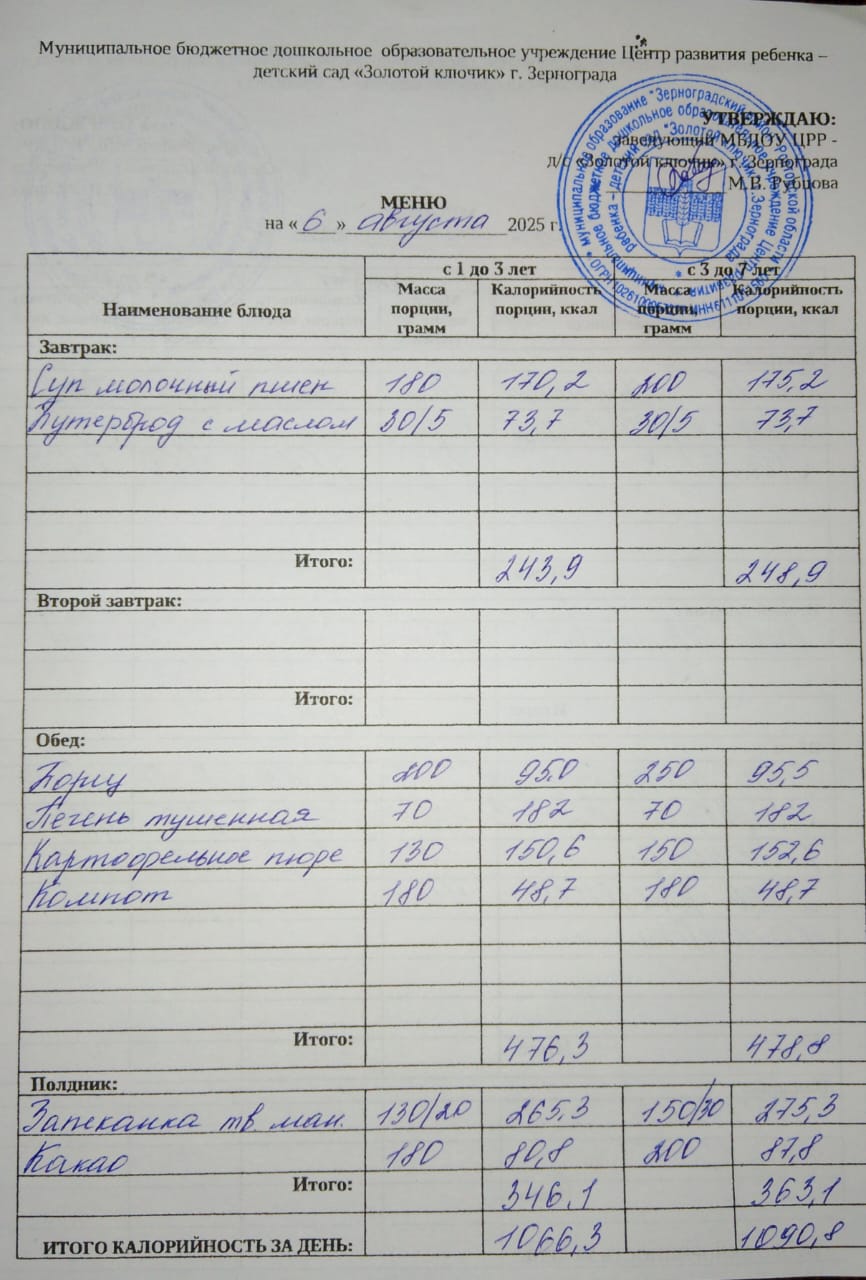 Муниципальное бюджетное дошкольное образовательное учреждение Центр развития ребенка –
детский сад «Золотой ключик» г. Зернограда
УТВЕРЖДАЮ:
заведующий МБДОУ ЦРР -
д/с «Золотой ключик» г. Зернограда
М.В. Рубцова
МЕНЮ
на « 6 » августа 2025 г.
Наименование блюда
с 1 до 3 лет с 3 до 7 лет
Масса порции, грамм Калорийность порции, ккал Масса порции, грамм Калорийность порции, ккал
Завтрак:
Суп молочный пшен 180 170,2 200 175,2
Бутерброд с маслом 30/5 73,7 30/5 73,7
Итого: 243,9 248,9
Второй завтрак:
Итого:
Обед:
Борщ 200 95.0 250 95,5
Печень тушенная 70 182 70 182
Картофельное пюре 130 150,6 150 152,6
Компот 180 48,7 180 48,7
Итого: 476,3 478,8
Полдник:
Запеканка тв. ман. 130/20 265.3 150/30 275,3
Какао 180 80,8 200 87,8
Итого: 346.1 363,1
ИТОГО КАЛОРИЙНОСТЬ ЗА ДЕНЬ: 1066,3 1090,8